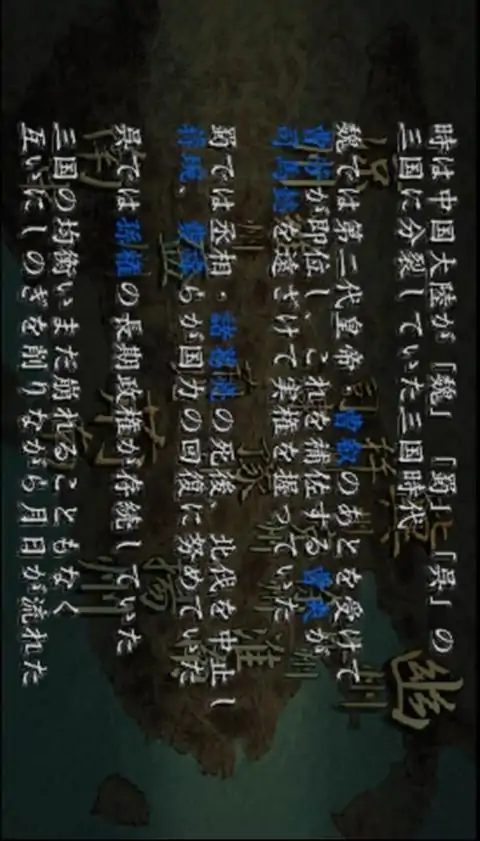 時は中国大陸が「魏」「蜀」「呉」の
三国に分裂していた三国時代
魏では第二代皇帝・曹叡のあとを受けて
曹芳が即位し、これを補佐する曹爽が
司馬懿を遠ざけて実権を握っていた
蜀では丞相・諸葛亮の死後、北伐を中止し
蒋琬、費禕らが国力の回復に努めていた
呉では孫権の長期政権が存続していた
三国の均衡いまだ崩れることもなく
互いにしのぎを削りながら月日が流れた
幽州
揚州